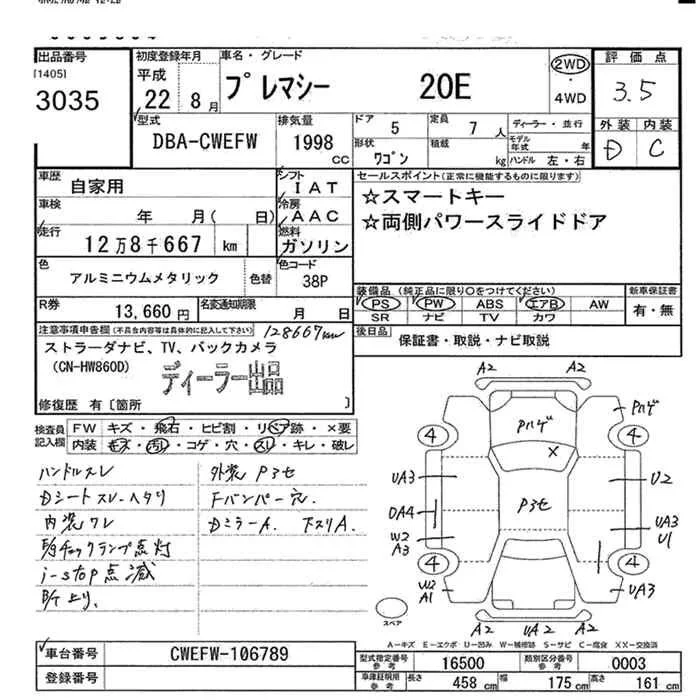 出品番号
[1405]
3035
初度登録年月
平成
22 8月
車名・グレード
プレマシー 20E
2WD
・
4WD
評価点
3.5
外装 内装
D C
型式
DBA-CWEFW
排気量
1998 CC
ドア 5
定員 7 人
形状 ワゴン
積載 kg
ディーラー・並行
モデル年式 年
ハンドル 左・右
車歴
自家用
シフト
IAT
車検
年 月( 日)
冷房
AAC
走行
12万8千667 km
燃料
ガソリン
色
アルミニウムメタリック
色替
色コード
38P
R券
13,660円
名変通知期限
月 日
セールスポイント(正常に機能するものに限り)
☆スマートキー
☆両側パワースライドドア
装備品(純正品に限り○をつけてください)
PS PW ABS エアB AW
SR ナビ TV カワ
新車保証書
有・無
後日品
保証書・取説・ナビ取説
注意事項申告欄(不具合内容等は具体的に記入して下さい)
128667km
ストラーダナビ、TV、バックカメラ
(CN-HW860D)
ディーラー出品
修復歴 有〔箇所 〕
検査員記入欄
FW キズ・飛石・ヒビ割・リペア跡・×要
内装 キズ・汚れ・コゲ・穴・スレ・キレ・破レ
ハンドルスレ
Dシートスレ・ヘタリ
内装ワレ
チェックランプ点灯
i-stop点滅
外装 P3セ
Fバンパー穴.
DミラーA. 下スリA.
A2 A2
Pハゲ
Pハゲ
4 4
X
UA3 U2
P3セ
DA4
UA3
U1
W2
A3
4 4
W2
A1
UA3
A2 UA2 A2
スペア
A=キズ E=エクボ U=凹み W=補修跡 S=サビ C=腐食 XX=交換済
車台番号
CWEFW-106789
登録番号
型式指定番号 参考 16500
類別区分番号 参考 0003
車庫証明用 参考
長さ 458 cm
幅 175 cm
高さ 161 cm